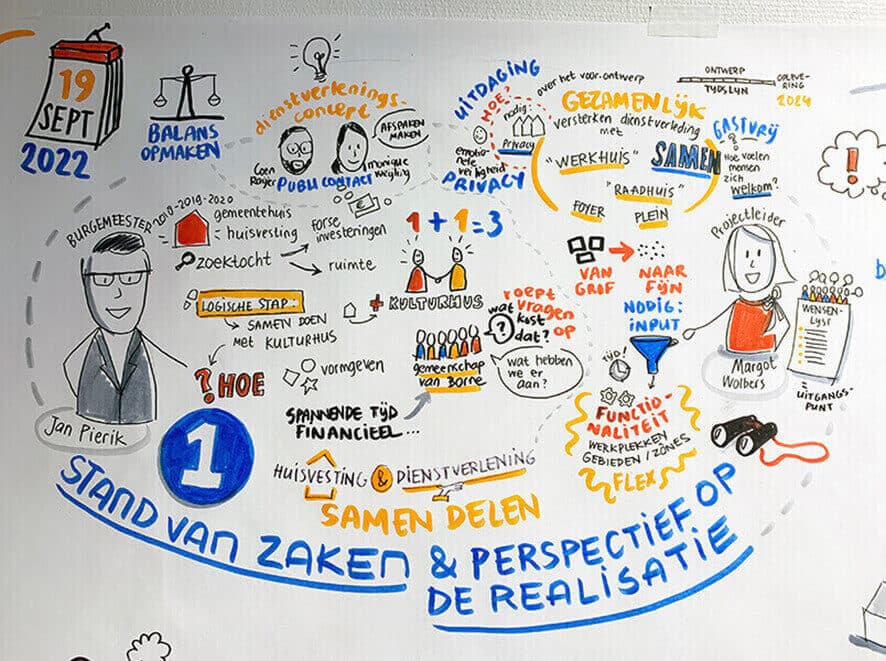 19
SEPT
2022
BALANS
OPMAKEN
dienstverlenings-
concept
AFSPAKEN
MAKEN
Coen
Rogier
monique
PUBLI CONTACT
UITDAGING
HOE?
nodig:
Privacy
emotio-
nele
veiligheid
PRIVACY
over het voor.ontwerp
GEZAMENLIJK
versterken dienstverleding
met
"WERKHUIS"
SAMEN
"RAADHUIS"
FOYER
PLEIN
ONTWERP
TYDSLYN
OPLEVE-
RING
2024
GASTVRIJ
?
Hoe voelen
mensen
zich
welkom?
!
BURGEMEESTER
2018-2019-2020
gemeentehuis
huisvesting
forse
investeringen
zoektocht
ruimte
LOGISCHE STAP:
SAMEN DOEN
MET KULTURHUS
? HOE
vormgeven
Jan Pierik
1 + 1 = 3
+ KULTURHUS
roept
vragen
op
?
wat
kost
dat?
gemeenschap
van Borne
wat hebben
we er
aan?
SPANNENDE TYD
FINANCIEEL...
HUISVESTING & DIENSTVERLENING
SAMEN DELEN
VAN
GROF
NAAR
FYN
NODIG:
INPUT
TYD!
FUNCTIO-
NALITEIT
WERKPLEKKEN
GEBIEDEN / ZÔNES
FLEX
Projectleider
Margot
Wolbers
WENSEN-
LYST
UITGANGS-
PUNT
1
STAND VAN ZAKEN & PERSPECTIEF OP
DE REALISATIE